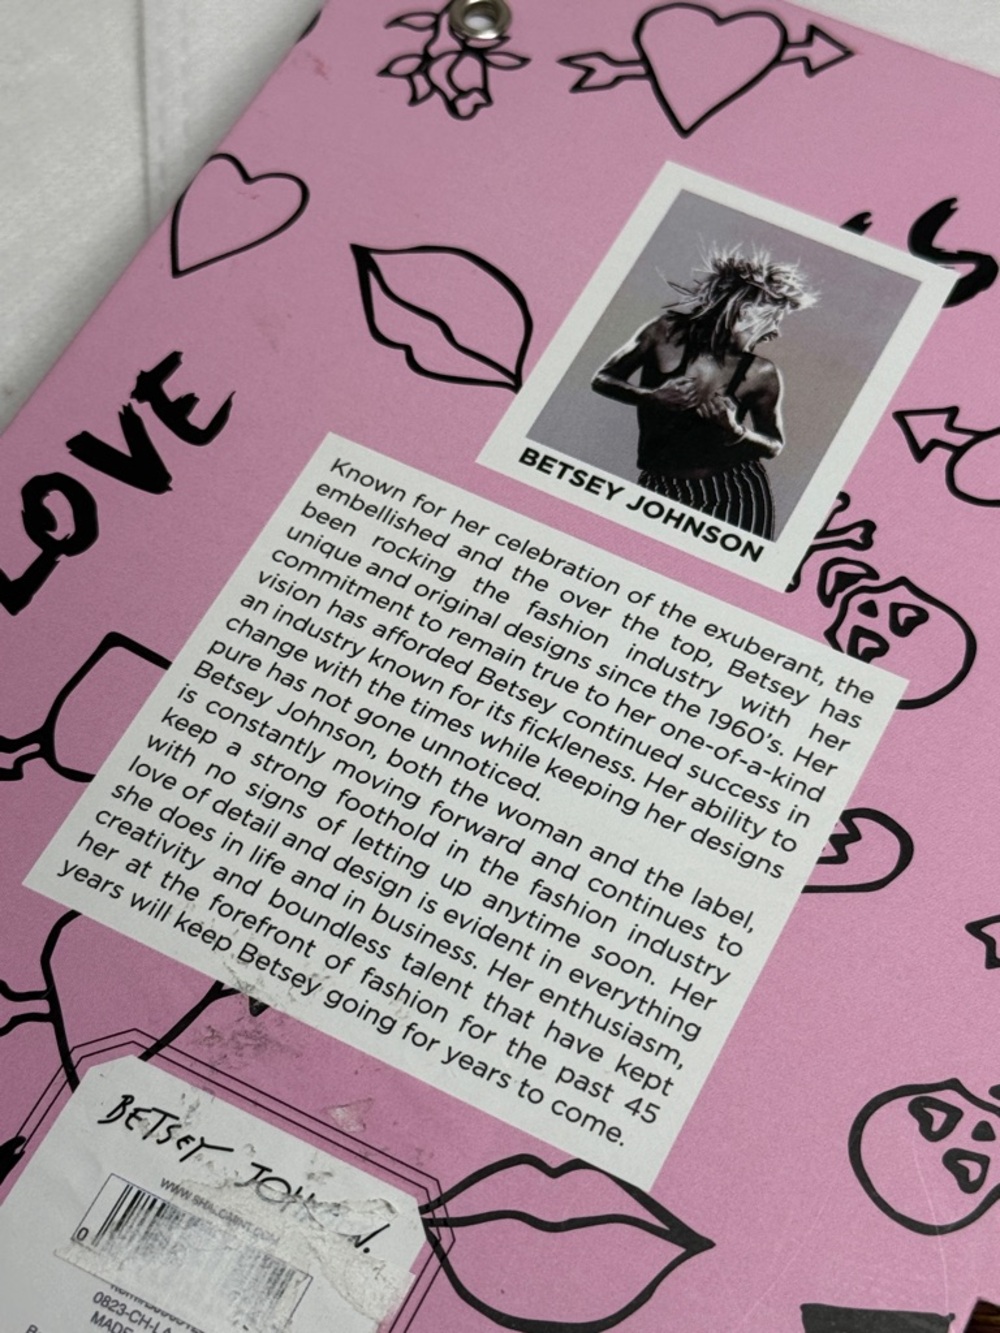 LOVE
BETSEY JOHNSON
Known for her celebration of the exuberant, the
embellished and the over the top, Betsey has
been rocking the fashion industry with her
unique and original designs since the 1960's. Her
commitment to remain true to her one-of-a-kind
vision has afforded Betsey continued success in
an industry known for its fickleness. Her ability to
change with the times while keeping her designs
pure has not gone unnoticed.
Betsey Johnson, both the woman and the label,
is constantly moving forward and continues to
keep a strong foothold in the fashion industry
with no signs of letting up anytime soon. Her
love of detail and design is evident in everything
she does in life and in business. Her enthusiasm,
creativity and boundless talent that have kept
her at the forefront of fashion for the past 45
years will keep Betsey going for years to come.
BETSEY JOHNSON.
0
0823-CH-LA
MADE